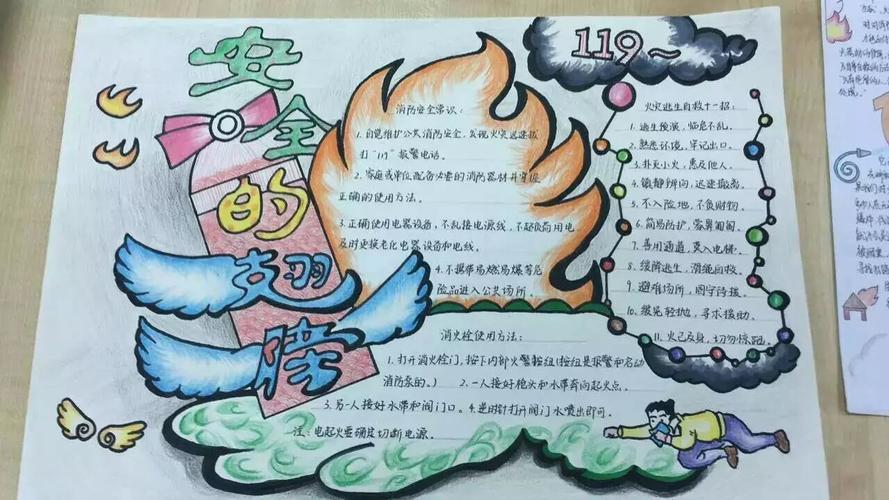 安全的翅膀
119~
消防安全常识:
1.自觉维护公共消防安全,发现火灾迅速拨
打"119"报警电话。
2.家庭或单位配备必要的消防器材并掌握
正确的使用方法。
3.正确使用电器设备,不乱接电源线,不超负荷用电,
及时更换老化电器设备和电线。
4.不携带易燃易爆等危
险品进入公共场所。
消火栓使用方法:
1.打开消火栓门,按下内部火警按钮(按钮是报警和启动
消防泵的。)
2.一人接好枪头和水带奔向起火点。
3.另一人接好水带和阀门口。
4.逆时针打开阀门水喷出即可。
注:电起火要确定切断电源。
火灾逃生自救十一招:
1.逃生预演,临危不乱。
2.熟悉环境,牢记出口。
3.扑灭小火,惠及他人。
4.镇静辨向,迅速撤离。
5.不入险地,不贪财物。
6.简易防护,蒙鼻匍匐。
7.善用通道,莫入电梯。
8.缓降逃生,滑绳自救。
9.避难场所,固守待援。
10.缓晃轻抛,寻求援助。
11.火已及身,切勿惊跑。